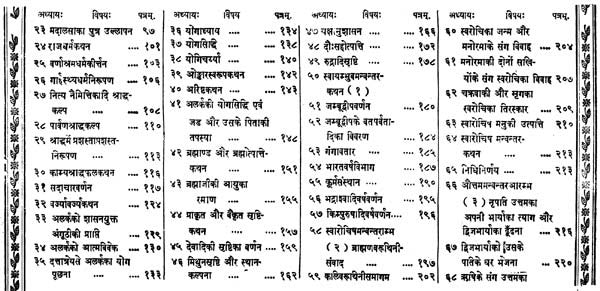 अध्यायः विषयः पत्रम्.
२३ मदालसाका पुत्र उल्लापन ९७
२४ राजधर्मकथन .... १०१
२५ वर्णाश्रमधर्मकीर्तन .... १०३
२६ गार्हस्थ्यधर्मनिरूपण .... १०६
२७ नित्य नैमित्तिकादि श्राद्ध-
कल्प .... .... १०८
२८ पार्वणश्राद्धकल्प .... ११०
२९ श्राद्धमें प्रशस्ताप्रशस्त-
निरूपण .... .... ११३
३० काम्यश्राद्धफलकथन .... ११६
३१ सदाचारवर्णन .... ११७
३२ वर्ज्यावर्ज्यकथन .... १२४
३३ अलर्कको शासनयुक्त
अंगूठीकी प्राप्ति .... १२९
३४ अलर्कको आत्मविवेक .... १३०
३५ दत्तात्रेयसे अलर्कका योग
पूछना .... .... १३३
अध्यायः विषयः पत्रम्.
३६ योगाध्याय .... .... १३४
३७ योगसिद्धि .... .... १३८
३८ योगिचर्या .... .... १४०
३९ ओङ्कारस्वरूपकथन .... १४२
४० अरिष्टकथन .... १४३
४१ अलर्ककी योगसिद्धि एवं
जड और उसके पिताकी
तपस्या .... .... १४८
४२ ब्रह्माण्ड और ब्रह्मोत्पत्ति-
कथन .... .... १५१
४३ ब्रह्माजीकी आयुका
रमाण .... .... १५५
४४ प्राकृत और वैकृत सृष्टि-
कथन .... .... १५७
४५ देवादिकी सृष्टिका वर्णन .... १५९
४६ मिथुनसृष्टि और स्थान-
कल्पना .... .... १६२
अध्यायः विषयः पत्रम्.
४७ यक्ष्मानुशासन .... १६६
४८ दौःसहोत्पत्ति .... १७३
४९ रुद्रादिसृष्टि .... १७८
५० स्वायम्भुवमन्वन्तर-
कथन (१)
५१ जम्बूद्वीपवर्णन .... १८०
५२ जम्बूद्वीपके वनपर्वता-
दिका विवरण .... १८४
५३ गंगावतार .... १८५
५४ भारतवर्षविभाग .... १८७
५५ कूर्मसंस्थान .... १९०
५६ भद्राश्वादिवर्षवर्णन .... १९५
५७ किम्पुरुषादिवर्षवर्णन .... १९६
५८ स्वारोचिषमन्वन्तर-
(२) ब्राह्मणवरूथिनी-
संवाद .... .... १९७
५९ कलिवरूथिनीसमागम .... २०२
अध्यायः विषयः पत्रम्.
६० स्वरोचिका जन्म और
मनोरमाके संग विवाह .... २०४
६१ मनोरमाकी दोनों सखि-
योंके संग स्वरोचिका विवाह २०७
६२ चक्रवाकी और मृगका
स्वरोचिका तिरस्कार .... २०९
६३ स्वारोचिष मनुकी उत्पत्ति २१०
६४ स्वारोचिष मन्वन्तर-
कथन .... .... २१३
६५ निधिनिर्णय .... .... २१३
६६ औत्तममन्वन्तरआरम्भ
(३) नृपति उत्तमका
अपनी भार्याका त्याग और
द्विजभार्याको ढूँढना .... २१६
६७ द्विजभार्याको उसके
पतिके घर भेजना .... २२०
६८ ऋषिके संग उत्तमका